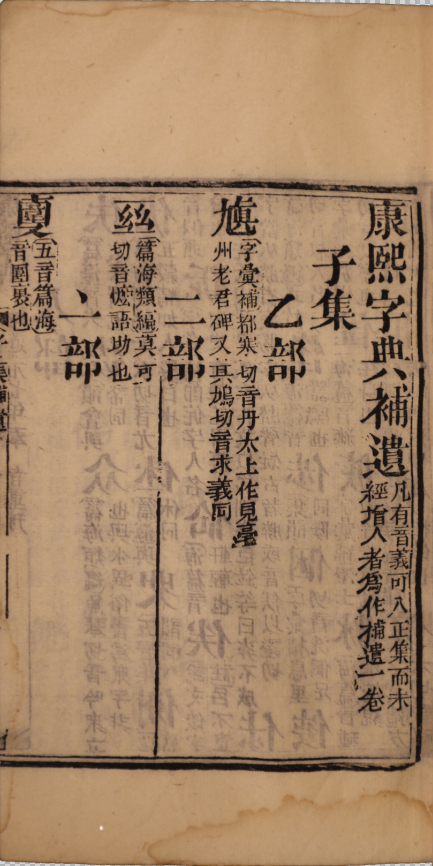 康熙字典補遺 凡有音義可入正集而未
經增入者為作補遺一卷
子集
乙部
字彙補都寒切音丹太上作見亳
州老君碑又其鳩切音求義同
二部
篇海類編莫可
切音麼語助也
亠部
五音篇海
音圍裹也